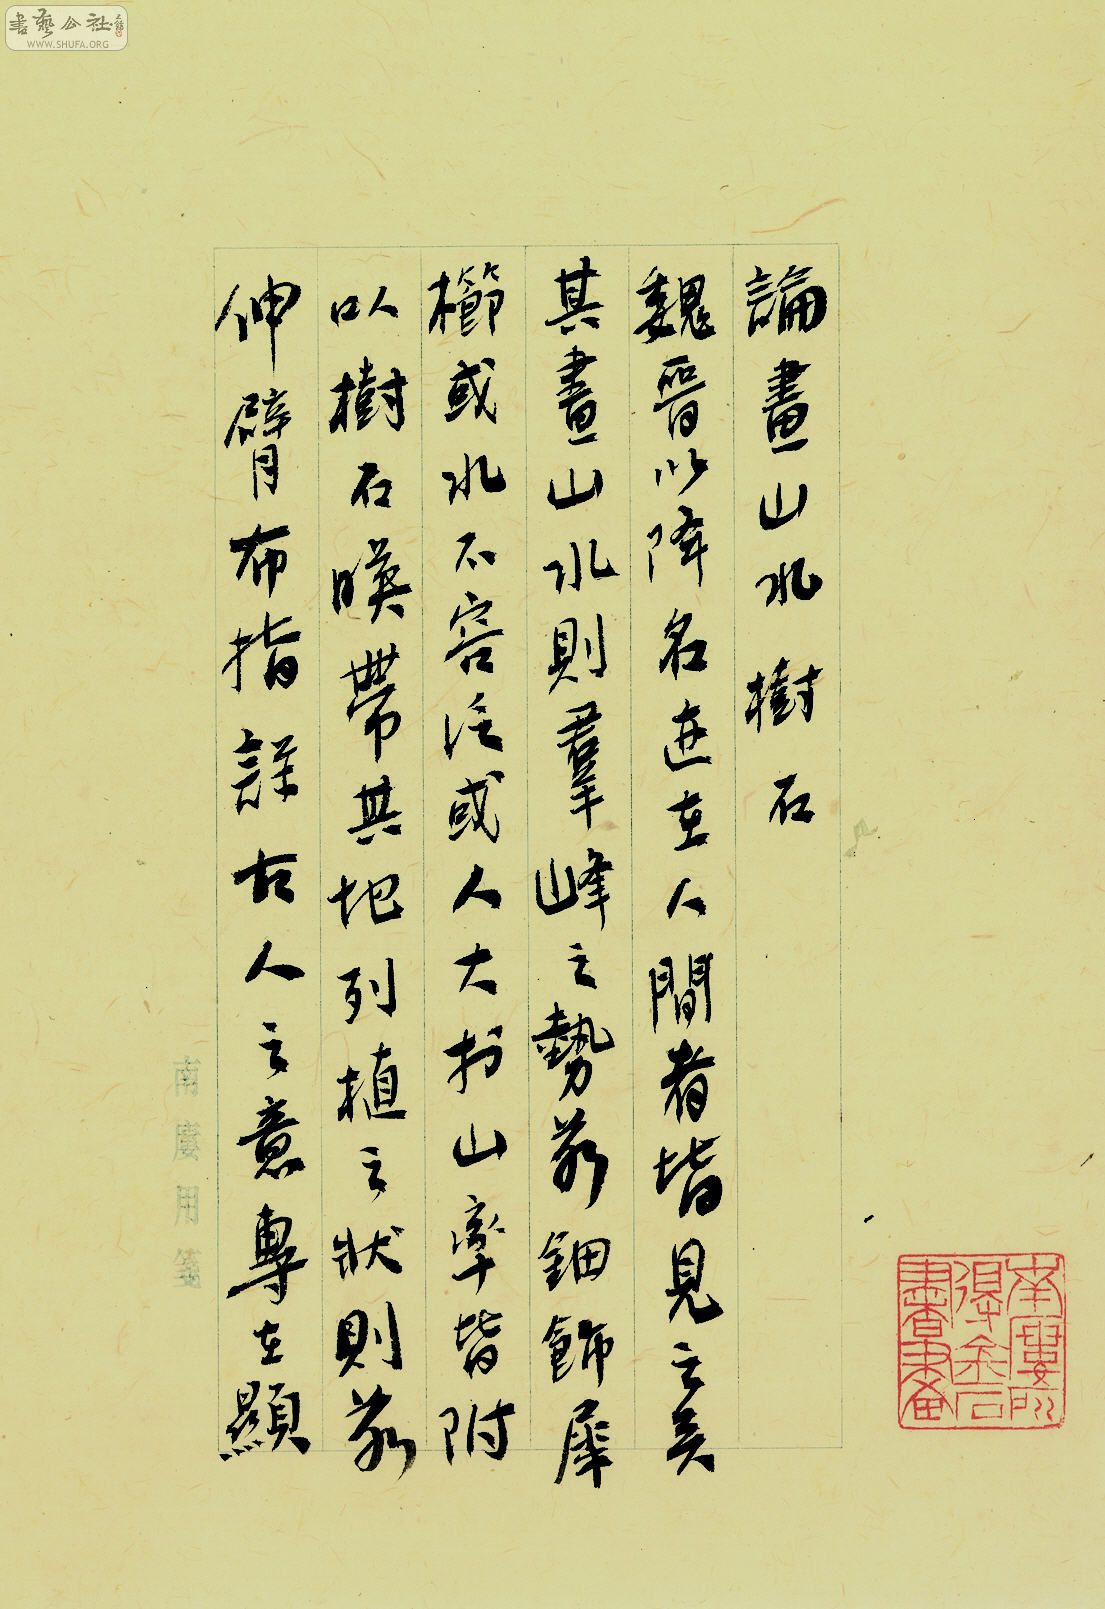 書藝公社
WWW.SHUFA.ORG
論畫山水樹石
魏晉以降名迹在人間者皆見之矣
其畫山水則羣峰之勢若鈿飾犀
櫛或水不容泛或人大於山率皆附
以樹石暎帶其地列植之狀則若
伸臂布指詳古人之意專在顯
南廔用箋
南廔所
得金石
書畫